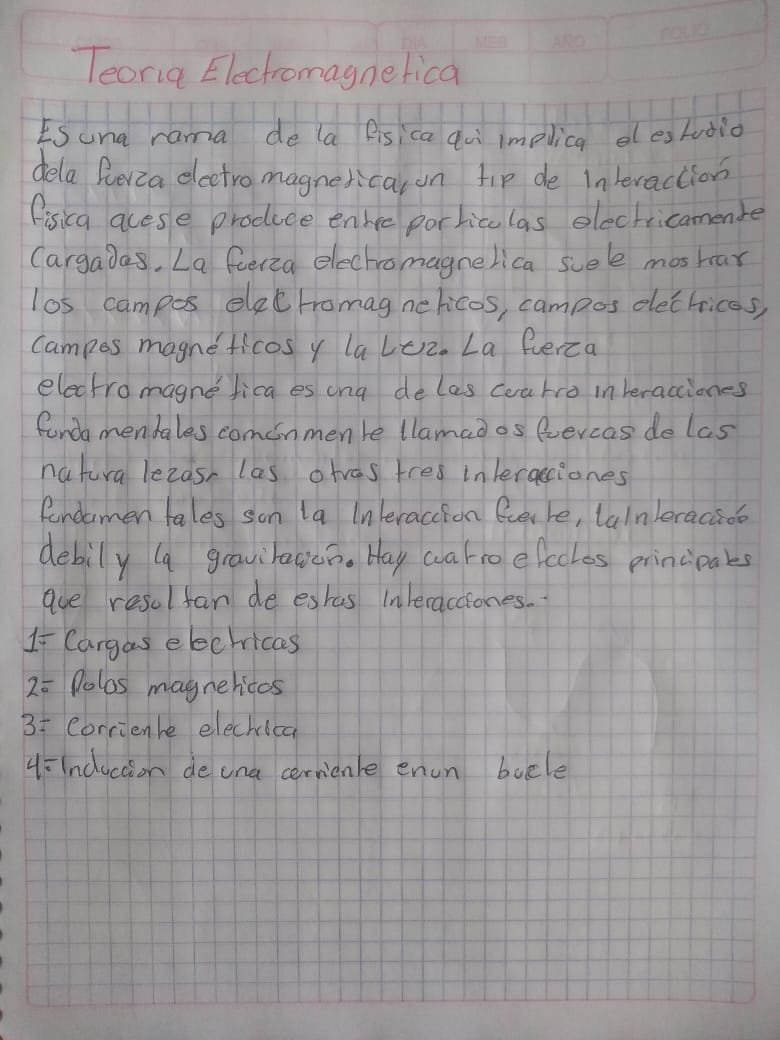 DIA MES AÑO FOLIO
Teoria Electromagnetica
Es una rama de la fisica qui implica el estudio
dela fuerza electro magnetica, un tip de Interacción
física que se produce entre particulas electricamente
Cargadas. La fuerza electromagnetica suele mostrar
los campos electromagneticos, campos eléctricos,
Campos magnéticos y la Luz. La fuerza
electro magnética es una de las cuatro interacciones
funda mentales comúnmente llamados fuercas de las
natura lezas. las otras tres interacciones
fundamen tales son la Interaccion fuerte, la Interacción
debil y la gravitación. Hay cuatro efectos principales
que resultan de estas Interacciones.
1= Cargas electricas
2= Polos magneticos
3= Corriente electrica
4= Induccion de una corriente enun bucle